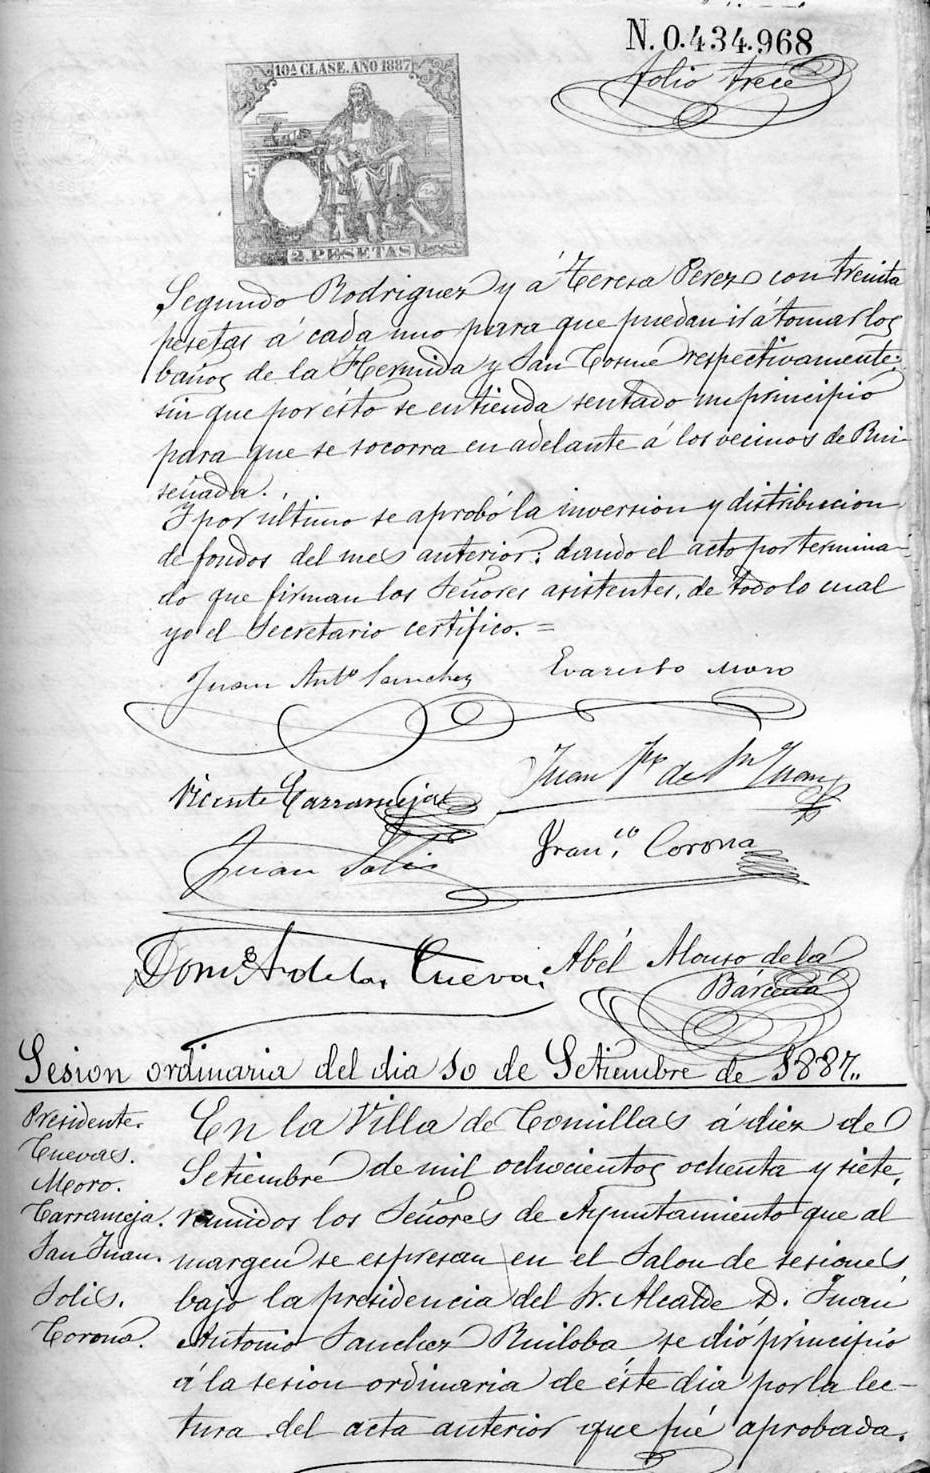 N. 0.434.968
folio trece
10ª CLASE. AÑO 1887
2. PESETAS
Segundo Rodriguez y á Teresa Perez con treinta
pesetas á cada uno para que puedan ir á tomar los
baños de la Hermida y San Cosme respectivamente:
sin que por ésto se entienda sentado un principio
para que se socorra en adelante á los vecinos de Rui-
señada.
Y por ultimo se aprobó la inversion y distribucion
de fondos del mes anterior: dando el acto por termina-
do que firman los Señores asistentes, de todo lo cual
yo el Secretario certifico. =
Juan Antº Sanchez
Evaristo Moro
Vicente Carrameja
Juan de Sn Juan
Juan Solis
Franco Corona
Domº A. de las Cuevas
Abél Alonso de la
Bárcena
Sesion ordinaria del dia 10 de Setiembre de 1887.,
Presidente.
Cuevas.
Moro.
Carrameja.
San Juan.
Solis.
Corona.
En la Villa de Comillas á diez de
Setiembre de mil ochocientos ochenta y siete,
reunidos los Señores de Ayuntamiento que al
margen se espresan en el Salon de sesiones
bajo la presidencia del Sr. Alcalde D. Juan
Antonio Sanchez Ruiloba se dió principio
á la sesion ordinaria de éste dia por la lec-
tura del acta anterior que fué aprobada.